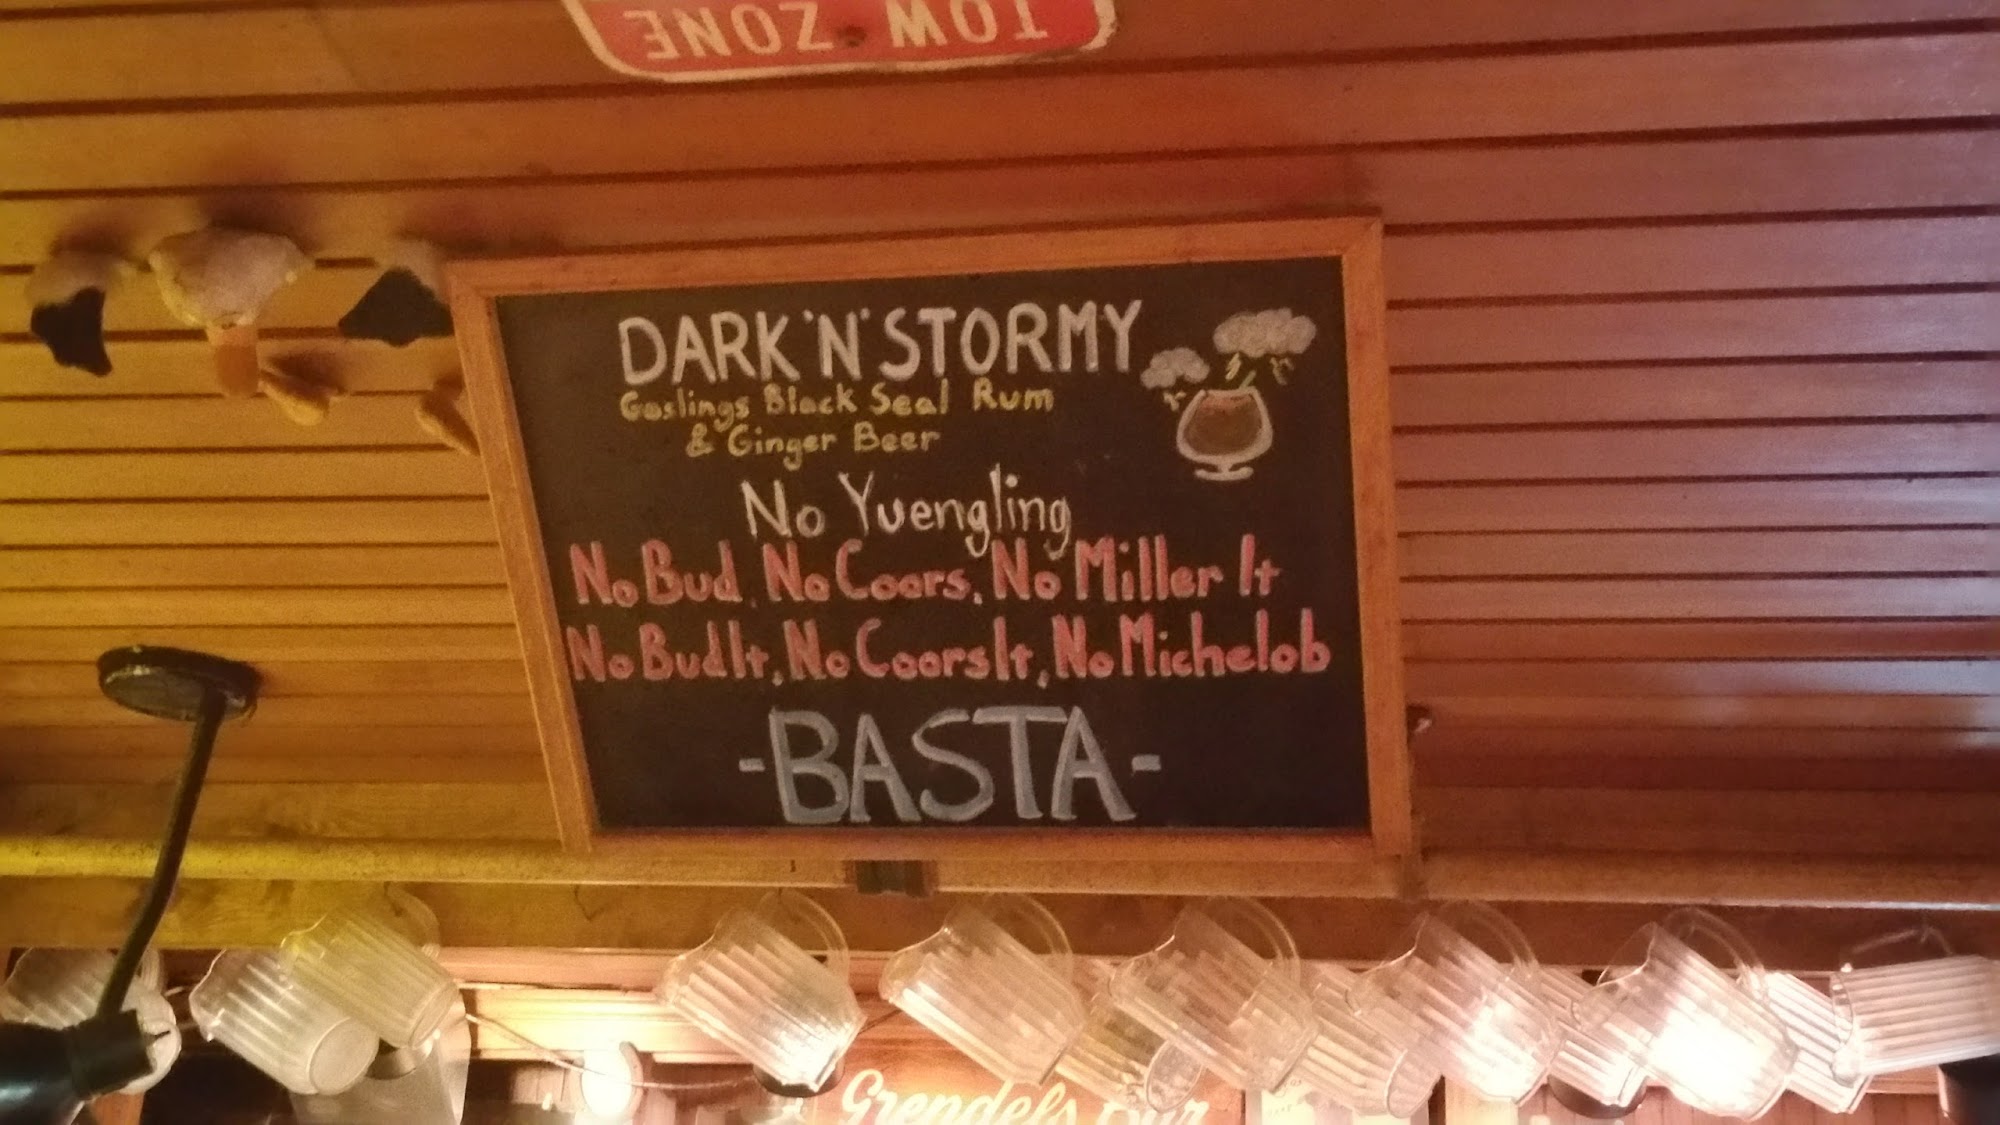 TOW ZONE
DARK 'N' STORMY
Goslings Black Seal Rum
& Ginger Beer
No Yuengling
No Bud, No Coors, No Miller lt
No Bud lt, No Coors lt, No Michelob
-BASTA-
Grendel's Bar